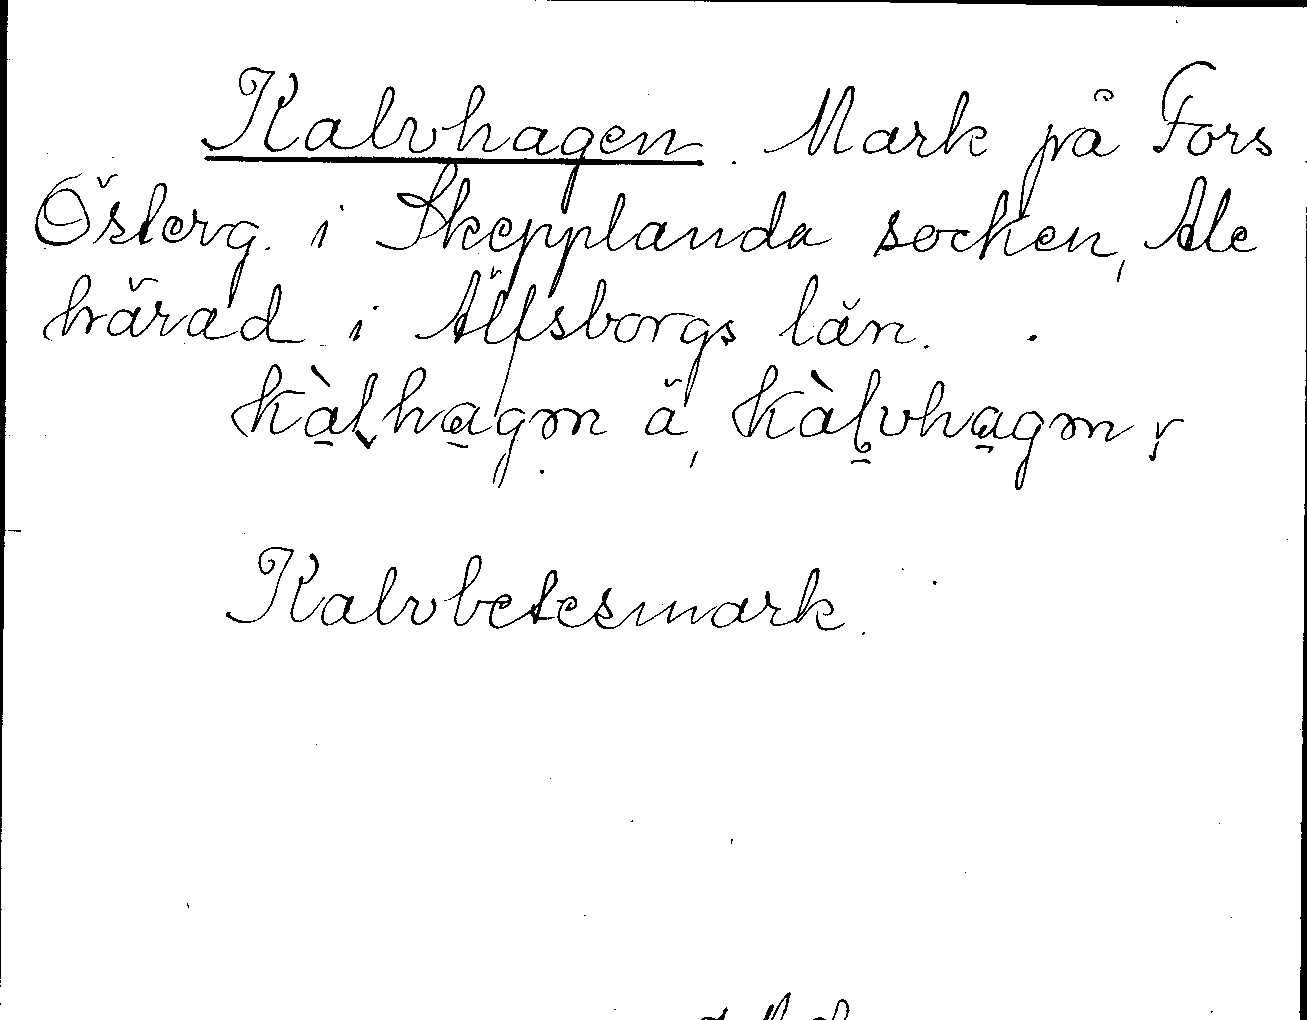 Kalvhagen. Mark på Fors
Österg. i Skepplanda socken, Ale
härad i Älfsborgs län.
kàlhagm ä, kàlvhagm,
Kalvbetesmark.